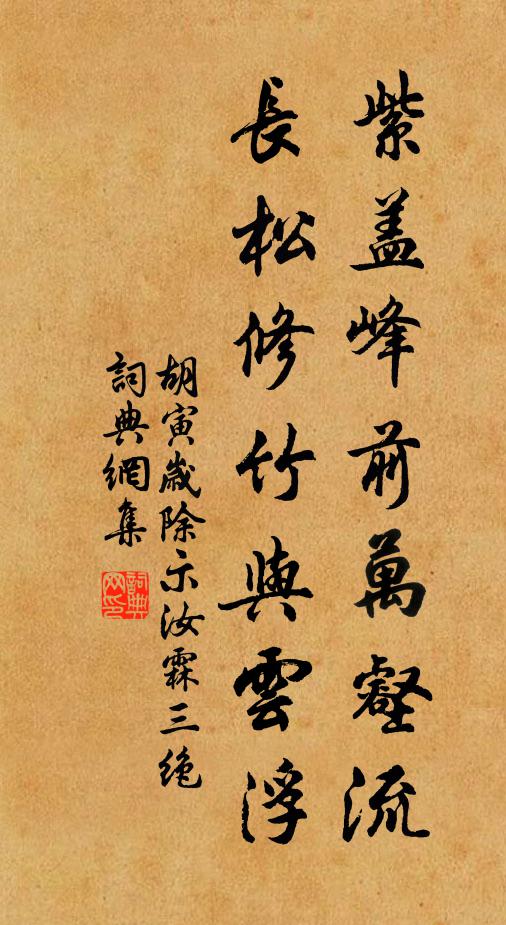 紫盖峰前萬壑流
長松修竹與雲浮
胡寅歲除示汝霖三絶
詞典網集
詞典
网印